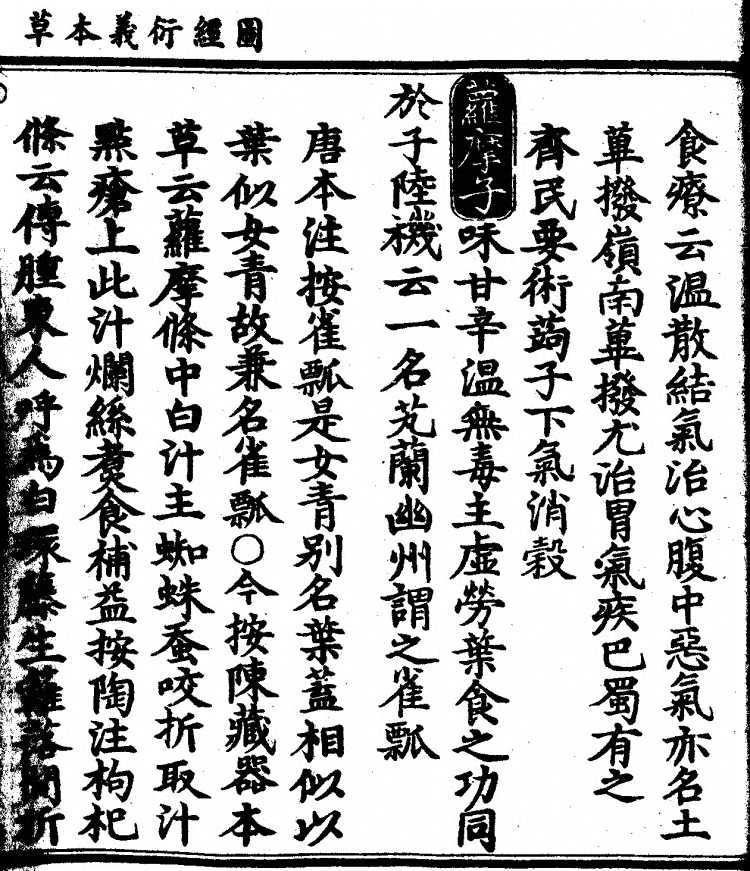 圖經衍義本草
食療云溫散結氣治心腹中惡氣亦名土
蓽撥嶺南蓽撥尤治胃氣疾巴蜀有之
齊民要術蒟子下氣消穀
蘿摩子味甘辛溫無毒主虛勞葉食之功同
於子陸機云一名芄蘭幽州謂之雀瓢
唐本注按雀瓢是女青别名葉蓋相似以
葉似女青故兼名雀瓢○今按陳藏器本
草云蘿摩條中白汁主蜘蛛蚕咬折取汁
點瘡上此汁爛絲煑食補益按陶注枸杞
條云傳腫東人呼為白環藤生籬落間折